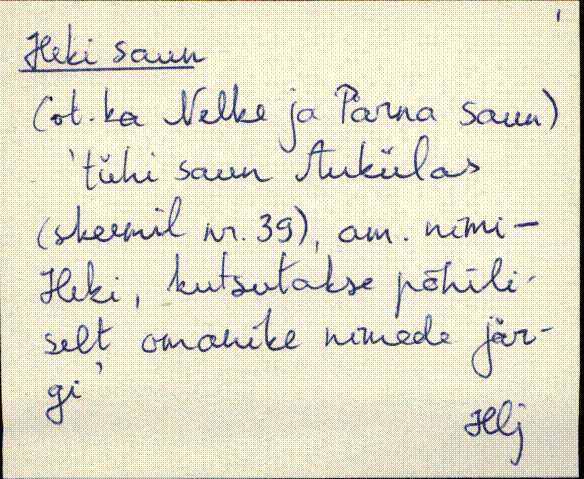 1
Heki saun
(ot. ka Nelke ja Pärna saun)
'tühi saun Aukülas
(skeemil nr. 39), am. nimi –
Heki, kutsutakse põhili-
selt omanike nimede jär-
gi'
Hlj